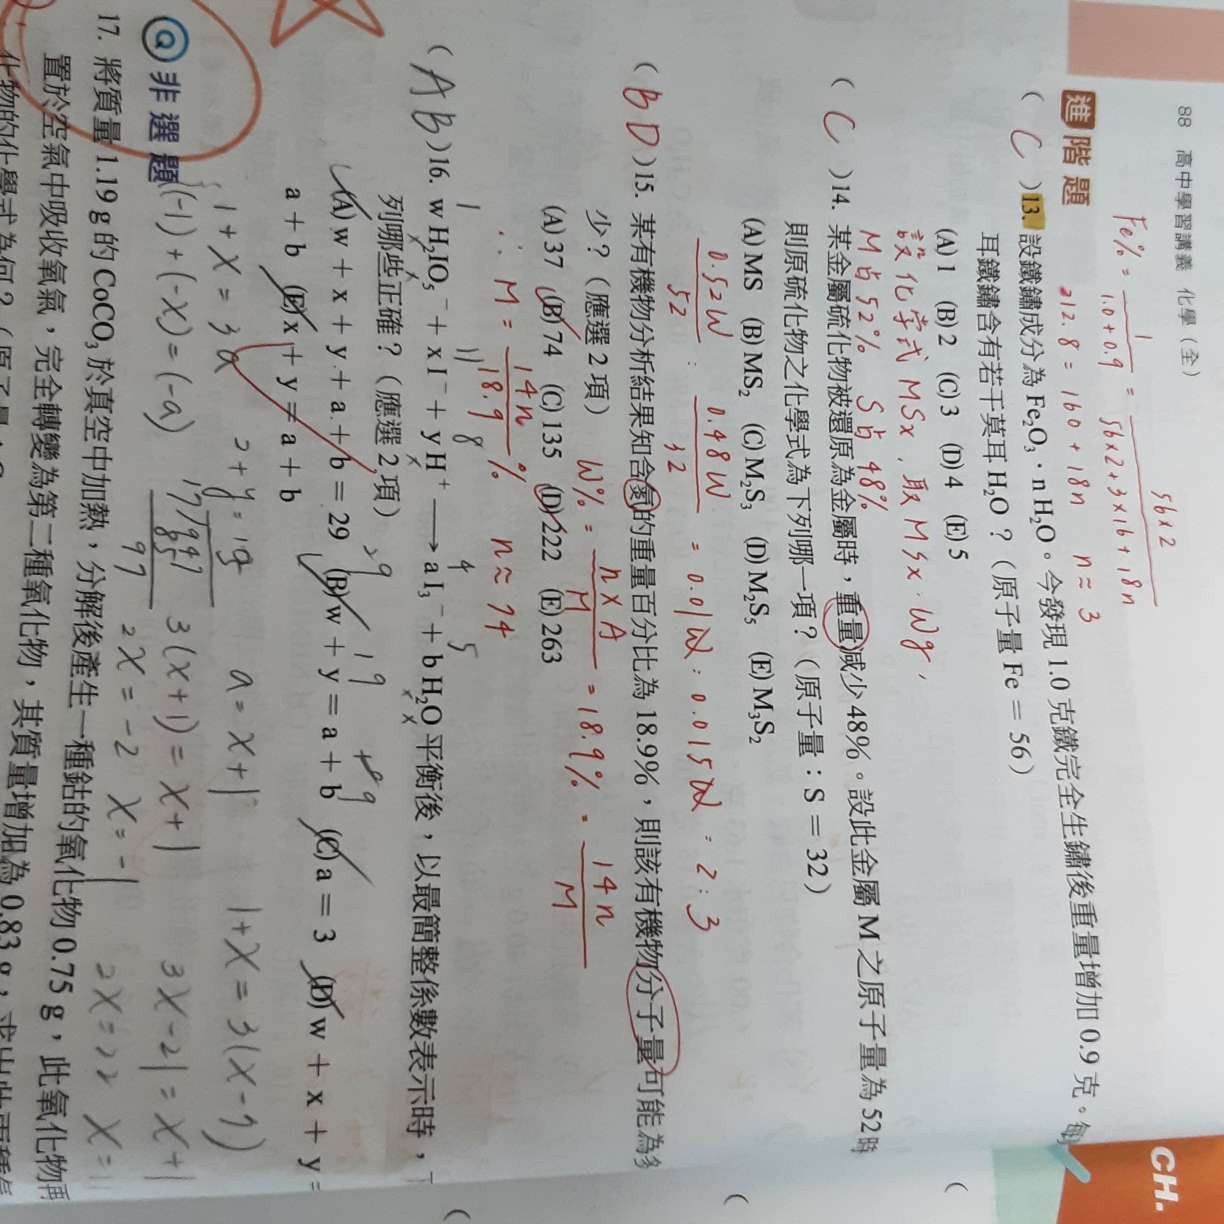 88 高中學習講義 化學（全）
CH.
進階題
Fe% = 1/(1.0+0.9) = 56×2/(56×2+3×16+18n)
212.8 = 160 + 18n n≈3
( C )13. 設鐵鏽成分為 Fe₂O₃．n H₂O。今發現 1.0 克鐵完全生鏽後重量增加 0.9 克。每
耳鐵鏽含有若干莫耳 H₂O？（原子量 Fe = 56）
(A) 1 (B) 2 (C) 3 (D) 4 (E) 5
設化學式 MSx，取 MSx．Wg，
M占52% S占48%
( C )14. 某金屬硫化物被還原為金屬時，重量減少 48%。設此金屬 M 之原子量為 52 時
則原硫化物之化學式為下列哪一項？（原子量：S = 32）
(A) MS (B) MS₂ (C) M₂S₃ (D) M₂S₅ (E) M₃S₂
0.52W/52 : 0.48W/32 = 0.01W : 0.015W = 2 : 3
( BD )15. 某有機物分析結果知含氮的重量百分比為 18.9%，則該有機物分子量可能為多
少？（應選 2 項） W% = n×A/M = 18.9% = 14n/M
(A) 37 (B) 74 (C) 135 (D) 222 (E) 263
∴ M = 14n/18.9% n≈74
1 11 8 4 5
( AB )16. w H₂IO₅⁻ + x I⁻ + y H⁺ ⟶ a I₃⁻ + b H₂O 平衡後，以最簡整係數表示時，下
列哪些正確？（應選 2 項）
29 19 9
(A) w + x + y + a + b = 29 (B) w + y = a + b (C) a = 3 (D) w + x + y =
a + b (E) x + y = a + b
1+x = 3a 2+y = 13 a = x+1 1+x = 3(x-7)
(-1)+(-x) = (-a) 3(x+1) = x+1 3x-21 = x+1
2x = -2 x = -1 2x = 22 x = 11
非選題
17. 將質量 1.19 g 的 CoCO₃ 於真空中加熱，分解後產生一種鈷的氧化物 0.75 g，此氧化物再
置於空氣中吸收氧氣，完全轉變為第二種氧化物，其質量增加為 0.83 g，求出此兩種氧
化物的化學式為何？（原子量：C